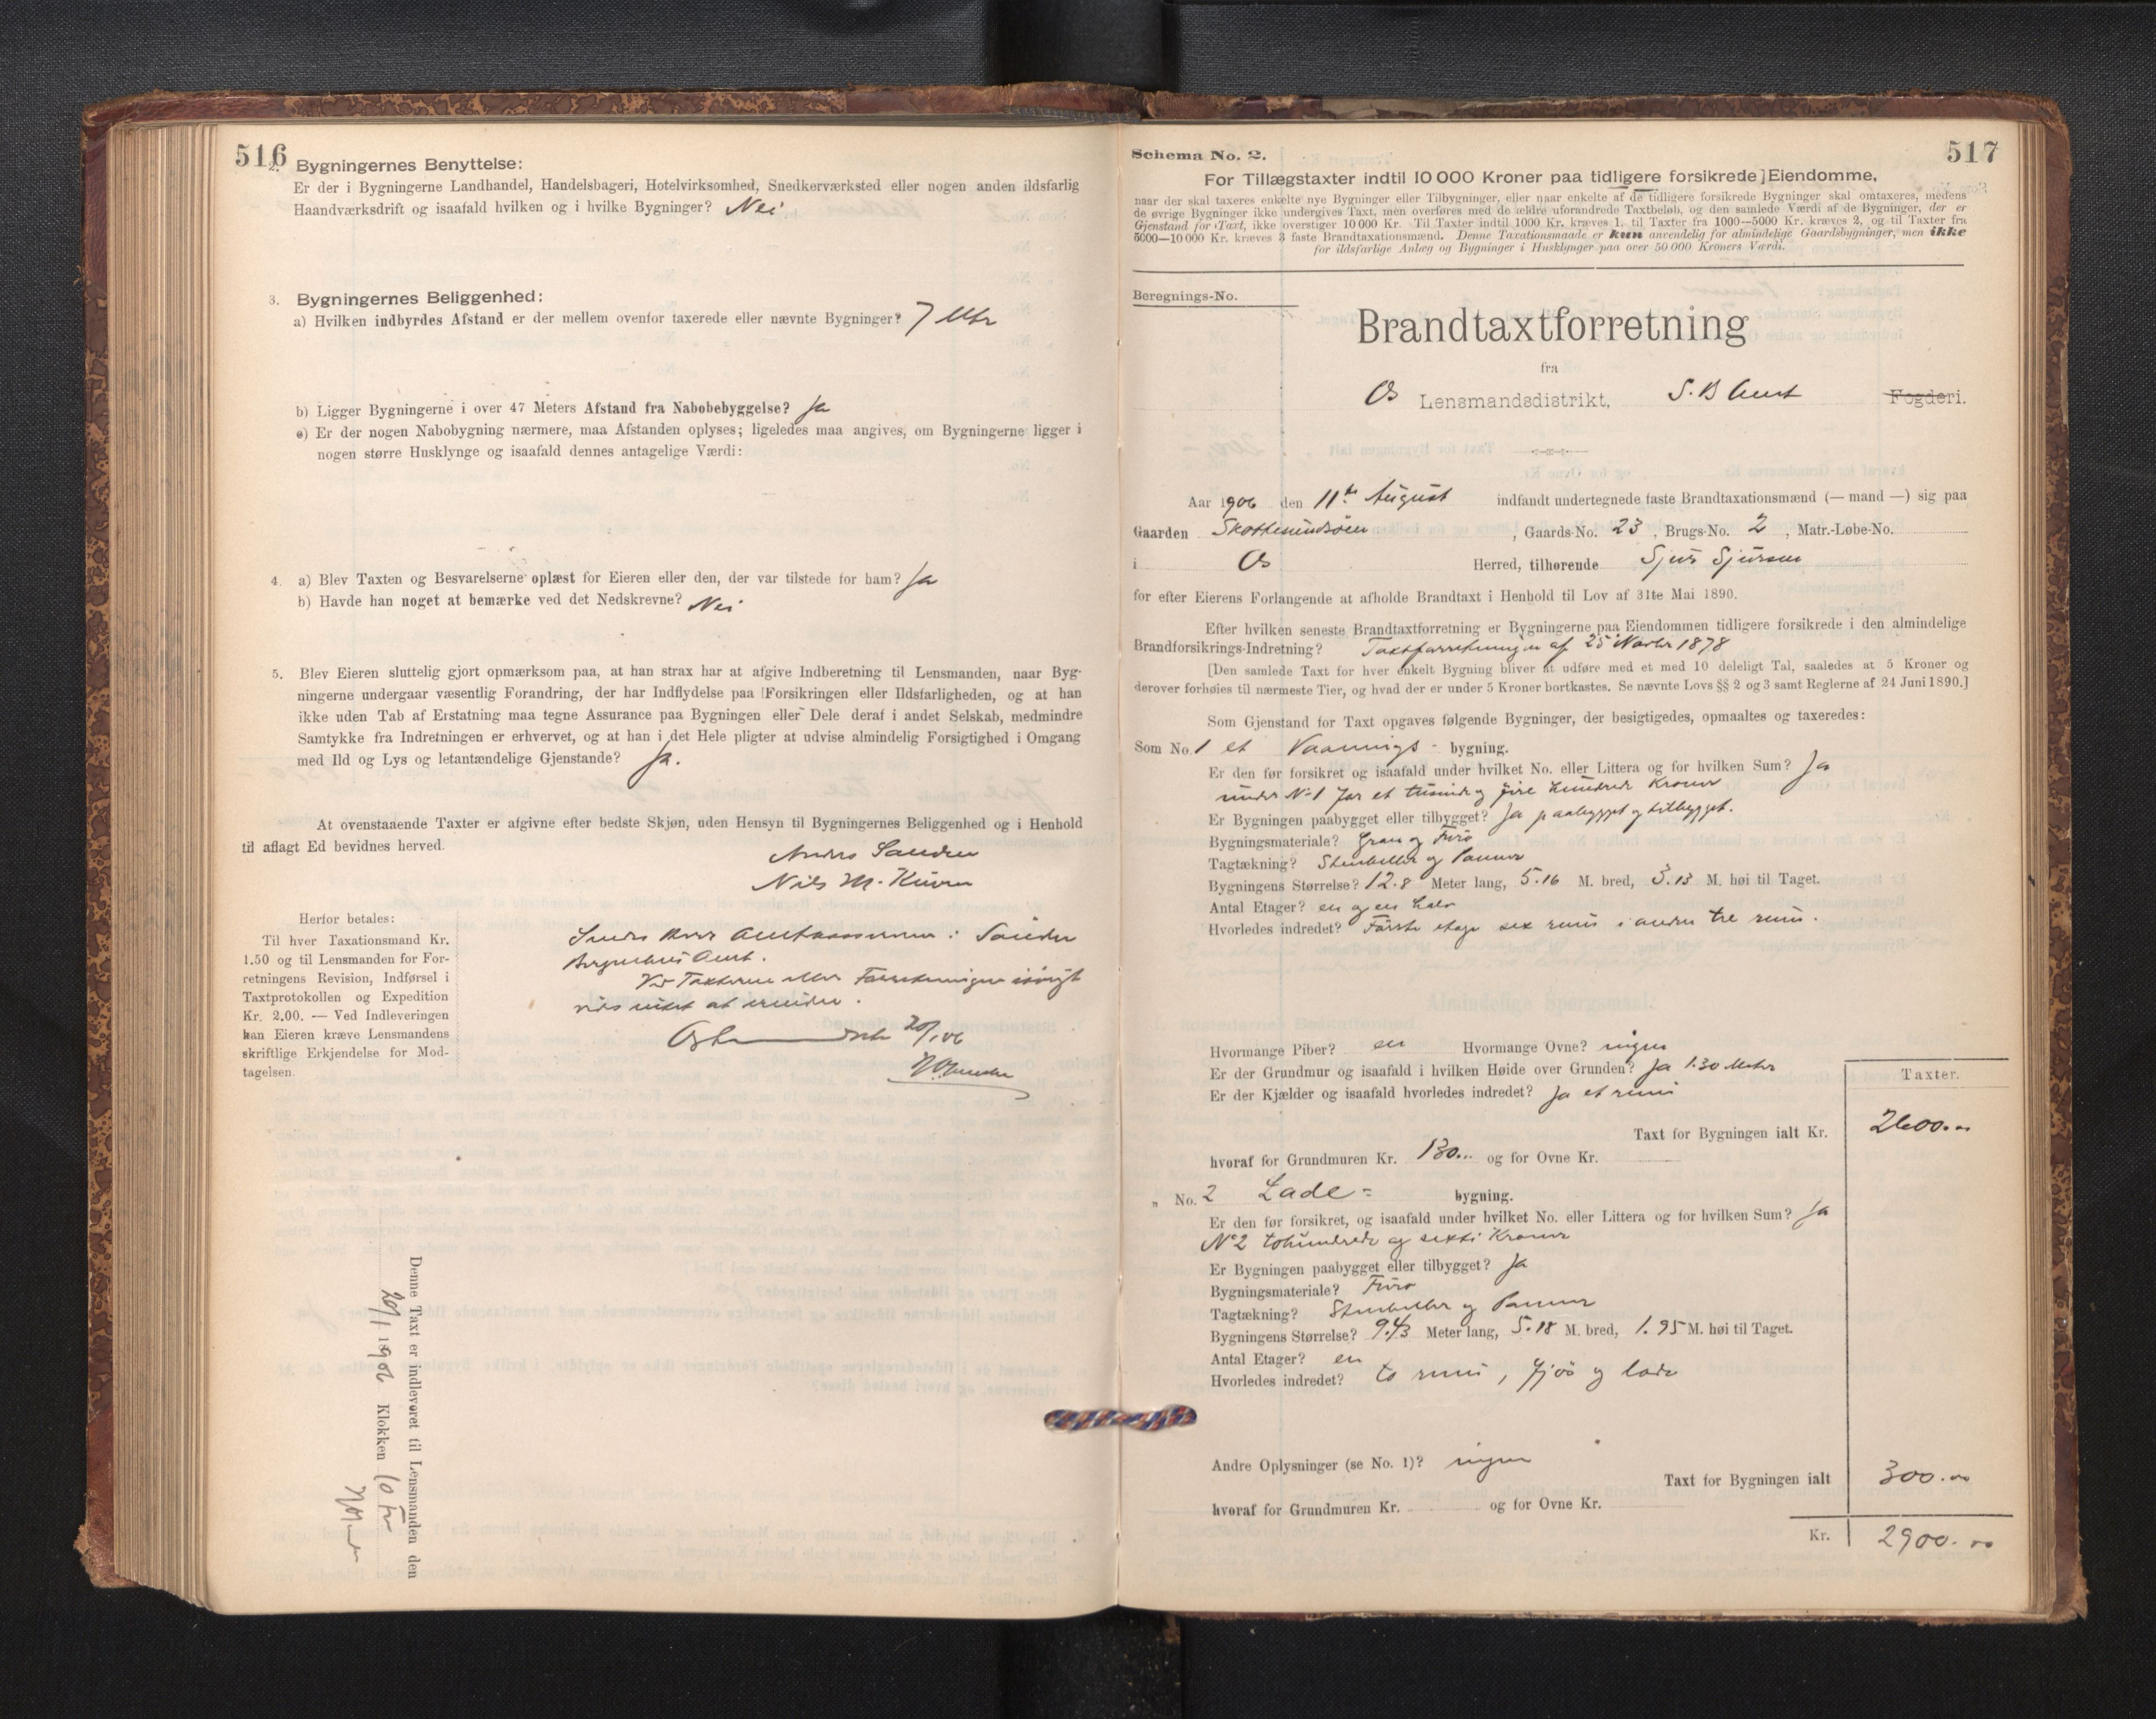 516
2. Bygningernes Benyttelse:
Er der i Bygningerne Landhandel, Handelsbageri, Hotelvirksomhed, Snedkerværksted eller nogen anden ildsfarlig
Haandværksdrift og isaafald hvilken og i hvilke Bygninger? Nei
3. Bygningernes Beliggenhed:
a) Hvilken indbyrdes Afstand er der mellem ovenfor taxerede eller nævnte Bygninger? 7 Mtr
b) Ligger Bygningerne i over 47 Meters Afstand fra Nabobebyggelse? Ja
c) Er der nogen Nabobygning nærmere, maa Afstanden oplyses; ligeledes maa angives, om Bygningerne ligger i
nogen større Husklynge og isaafald dennes antagelige Værdi:
4. a) Blev Taxten og Besvarelserne oplæst for Eieren eller den, der var tilstede for ham? Ja
b) Havde han noget at bemærke ved det Nedskrevne? Nei
5. Blev Eieren sluttelig gjort opmærksom paa, at han strax har at afgive Indberetning til Lensmanden, naar Byg-
ningerne undergaar væsentlig Forandring, der har Indflydelse paa Forsikringen eller Ildsfarligheden, og at han
ikke uden Tab af Erstatning maa tegne Assurance paa Bygningen eller Dele deraf i andet Selskab, medmindre
Samtykke fra Indretningen er erhvervet, og at han i det Hele pligter at udvise almindelig Forsigtighed i Omgang
med Ild og Lys og letantændelige Gjenstande? Ja.
At ovenstaaende Taxter er afgivne efter bedste Skjøn, uden Hensyn til Bygningernes Beliggenhed og i Henhold
til aflagt Ed bevidnes herved.
Nils M.
Herfor betales:
Til hver Taxationsmand Kr.
1.50 og til Lensmanden for For-
retningens Revision, Indførsel i
Taxtprotokollen og Expedition
Kr. 2.00. — Ved Indleveringen
kan Eieren kræve Lensmandens
skriftlige Erkjendelse for Mod-
tagelsen.
Sendes Herr Amtskassereren i Søndre
Bergenhus Amt.
Ved Taxterne eller Forretningen iøvrigt
vides intet at erindre.
Denne Taxt er indleveret til Lensmanden den
1906 Klokken 10
Schema No. 2.
517
For Tillægstaxter indtil 10 000 Kroner paa tidligere forsikrede Eiendomme,
naar der skal taxeres enkelte nye Bygninger eller Tilbygninger, eller naar enkelte af de tidligere forsikrede Bygninger skal omtaxeres, medens
de øvrige Bygninger ikke undergives Taxt, men overføres med de ældre uforandrede Taxtbeløb, og den samlede Værdi af de Bygninger, der er
Gjenstand for Taxt, ikke overstiger 10 000 Kr. Til Taxter indtil 1000 Kr. kræves 1, til Taxter fra 1000—5000 Kr. kræves 2, og til Taxter fra
5000—10 000 Kr. kræves 3 faste Brandtaxationsmænd. Denne Taxationsmaade er kun anvendelig for almindelige Gaardsbygninger, men ikke
for ildsfarlige Anlæg og Bygninger i Husklynger paa over 50 000 Kroners Værdi.
Beregnings-No.
Brandtaxtforretning
fra
Os Lensmandsdistrikt, S. B Amt Fogderi.
Aar 1906 den 11te August indfandt undertegnede faste Brandtaxationsmænd (— mand —) sig paa
Gaarden , Gaards-No. 23, Brugs-No. 2, Matr.-Løbe-No.
i Os Herred, tilhørende Sjur Sjursen
for efter Eierens Forlangende at afholde Brandtaxt i Henhold til Lov af 31te Mai 1890.
Efter hvilken seneste Brandtaxtforretning er Bygningerne paa Eiendommen tidligere forsikrede i den almindelige
Brandforsikrings-Indretning? Taxtforretningen af 25 Novbr 1878
[Den samlede Taxt for hver enkelt Bygning bliver at udføre med et med 10 deleligt Tal, saaledes at 5 Kroner og
derover forhøies til nærmeste Tier, og hvad der er under 5 Kroner bortkastes. Se nævnte Lovs §§ 2 og 3 samt Reglerne af 24 Juni 1890.]
Som Gjenstand for Taxt opgaves følgende Bygninger, der besigtigedes, opmaaltes og taxeredes:
Som No. 1 et Vaanings- bygning.
Er den før forsikret og isaafald under hvilket No. eller Littera og for hvilken Sum? Ja
under No 1 for et tusind og fire hundrede Kroner
Er Bygningen paabygget eller tilbygget? Ja paabygget og tilbygget.
Bygningsmateriale? Gran og Furu
Tagtækning? Stenheller og Panner
Bygningens Størrelse? 12.8 Meter lang, 5.16 M. bred, 3.13 M. høi til Taget.
Antal Etager? en og en halv
Hvorledes indredet? Første etage sex rum i anden tre rum.
Hvormange Piber? en Hvormange Ovne? ingen
Er der Grundmur og isaafald i hvilken Høide over Grunden? Ja 1.30 Meter
Er der Kjælder og isaafald hvorledes indredet? Ja et rum
Taxter.
Taxt for Bygningen ialt Kr. 2600.00
hvoraf for Grundmuren Kr. 130... og for Ovne Kr.
„ No. 2 Lade- bygning.
Er den før forsikret, og isaafald under hvilket No. eller Littera og for hvilken Sum? Ja
No 2 tohundrede og sexti Kroner
Er Bygningen paabygget eller tilbygget? Ja
Bygningsmateriale? Furu
Tagtækning? Stenheller og Panner
Bygningens Størrelse? 9.43 Meter lang, 5.18 M. bred, 1.95 M. høi til Taget.
Antal Etager? en
Hvorledes indredet? to rum, og lade
Andre Oplysninger (se No. 1)? ingen
Taxt for Bygningen ialt 300.00
hvoraf for Grundmuren Kr. og for Ovne Kr.
Kr. 2900.00